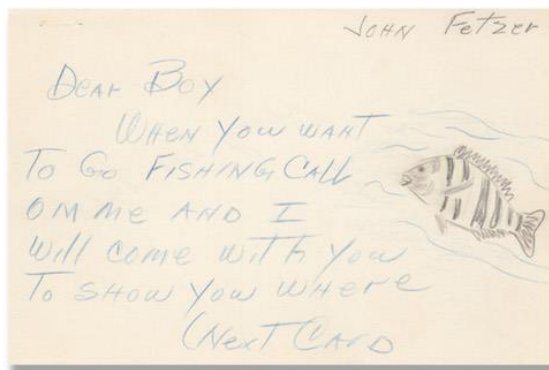 John Fetzer
Dear Boy
When you want
To Go Fishing Call
om me and I
will come with you
To show you where
(Next Card